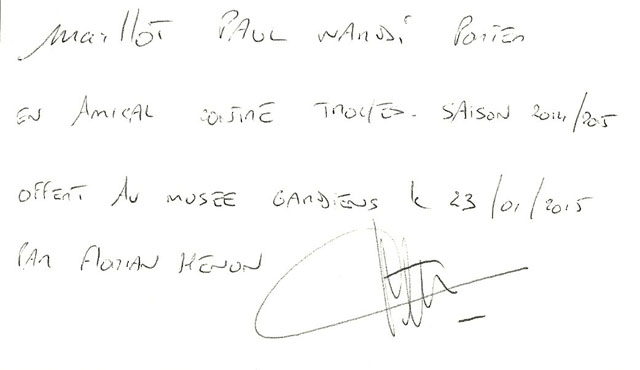 Maillot PAUL NARDI PORTER
EN AMICAL CONTRE TROYES. SAISON 2014/2015
OFFERT AU MUSEE GARDIENS le 23/01/2015
PAR FLORIAN HENON